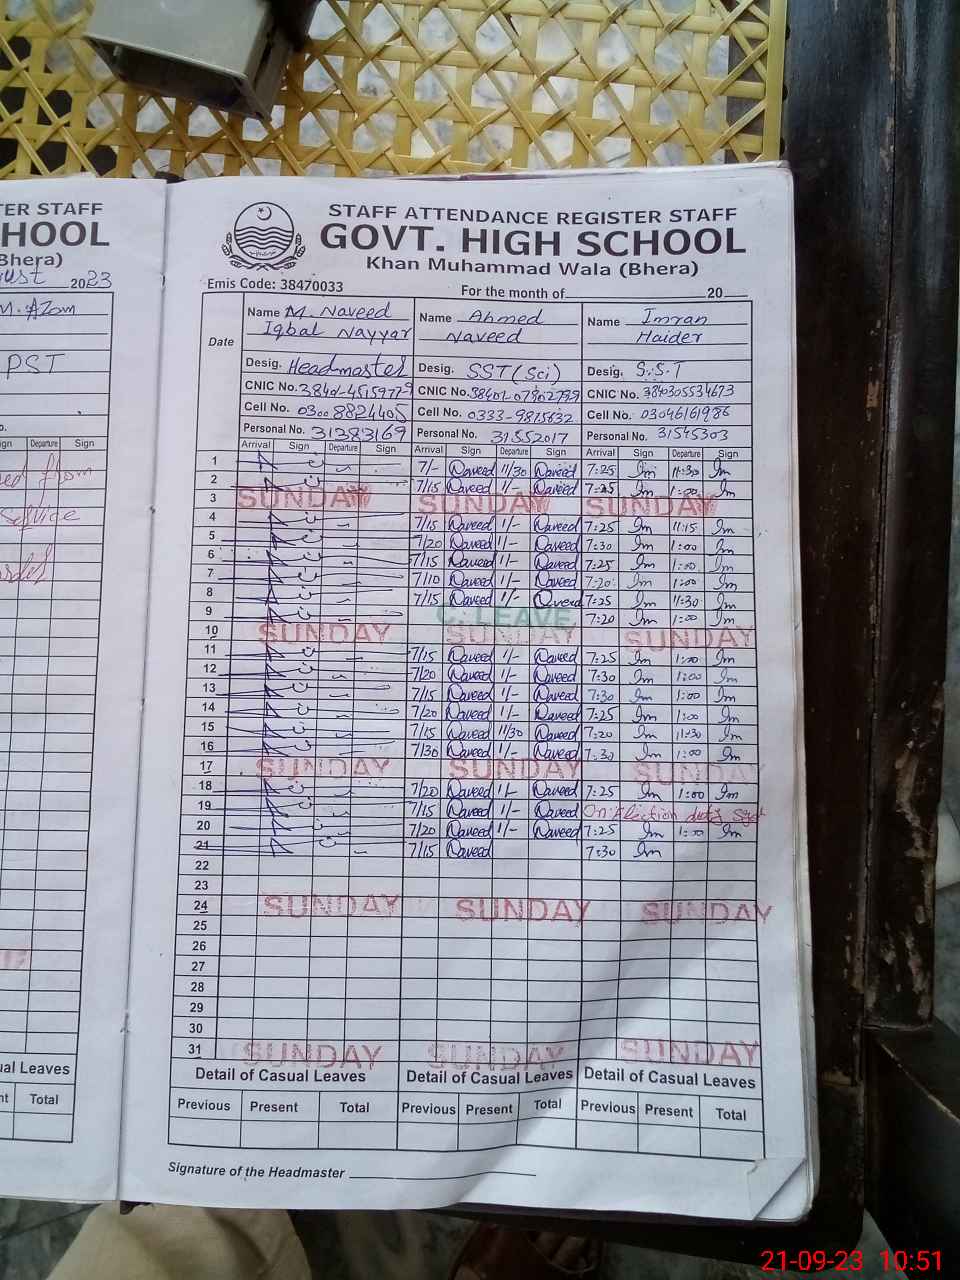 TER STAFF
HOOL
Bhera)
ust 2023
M. Azam
PST
o.
ign Departure Sign
ed from
Service
ual Leaves
nt Total
STAFF ATTENDANCE REGISTER STAFF
GOVT. HIGH SCHOOL
Khan Muhammad Wala (Bhera)
Emis Code: 38470033 For the month of 20
Date
Name M. Naveed Iqbal Nayyar Name Ahmed Naveed Name Imran Haider
Desig. Headmaster Desig. SST (Sci) Desig. S.S.T
CNIC No. CNIC No. CNIC No. 3840305534673
Cell No. 0300 8824405 Cell No. 0333-9815632 Cell No. 03046161986
Personal No. 31383169 Personal No. 31552017 Personal No. 31545303
Arrival Sign Departure Sign Arrival Sign Departure Sign Arrival Sign Departure Sign
1 7/- Naveed 11/30 Naveed 7:25 Im 11:30 Im
2 7/15 Naveed Naveed 7:25 Im 1:00 Im
3 SUNDAY SUNDAY SUNDAY
4 7/15 Naveed 1/- Naveed 7:25 Im 11:15 Im
5 7/20 Naveed 1/- Naveed 7:30 Im 1:00 Im
6 7/15 Naveed 1/- Naveed 7:25 Im 1:00 Im
7 7/10 Naveed 1/- Naveed 7:20 Im 1:00 Im
8 7/15 Naveed 1/- Naveed 7:25 Im 11:30 Im
9 C. LEAVE 7:20 Im 1:00 Im
10 SUNDAY SUNDAY SUNDAY
11 7/15 Naveed 1/- Naveed 7:25 Im 1:00 Im
12 7/20 Naveed 1/- Naveed 7:30 Im 1:00 Im
13 7/15 Naveed 1/- Naveed 7:30 Im 1:00 Im
14 7/20 Naveed 1/- Naveed 7:25 Im 1:00 Im
15 7/15 Naveed 11/30 Naveed 7:20 Im 11:30 Im
16 7/30 Naveed 1/- Naveed 7:30 Im 1:00 Im
17 SUNDAY SUNDAY SUNDAY
18 7/20 Naveed 1/- Naveed 7:25 Im 1:00 Im
19 7/15 Naveed 1/- Naveed On Election duty
20 7/20 Naveed 1/- Naveed 7:25 Im 1:00 Im
21 7/15 Naveed 7:30 Im
22
23
24 SUNDAY SUNDAY SUNDAY
25
26
27
28
29
30
31 SUNDAY SUNDAY SUNDAY
Detail of Casual Leaves Detail of Casual Leaves Detail of Casual Leaves
Previous Present Total Previous Present Total Previous Present Total
Signature of the Headmaster
21-09-23 10:51